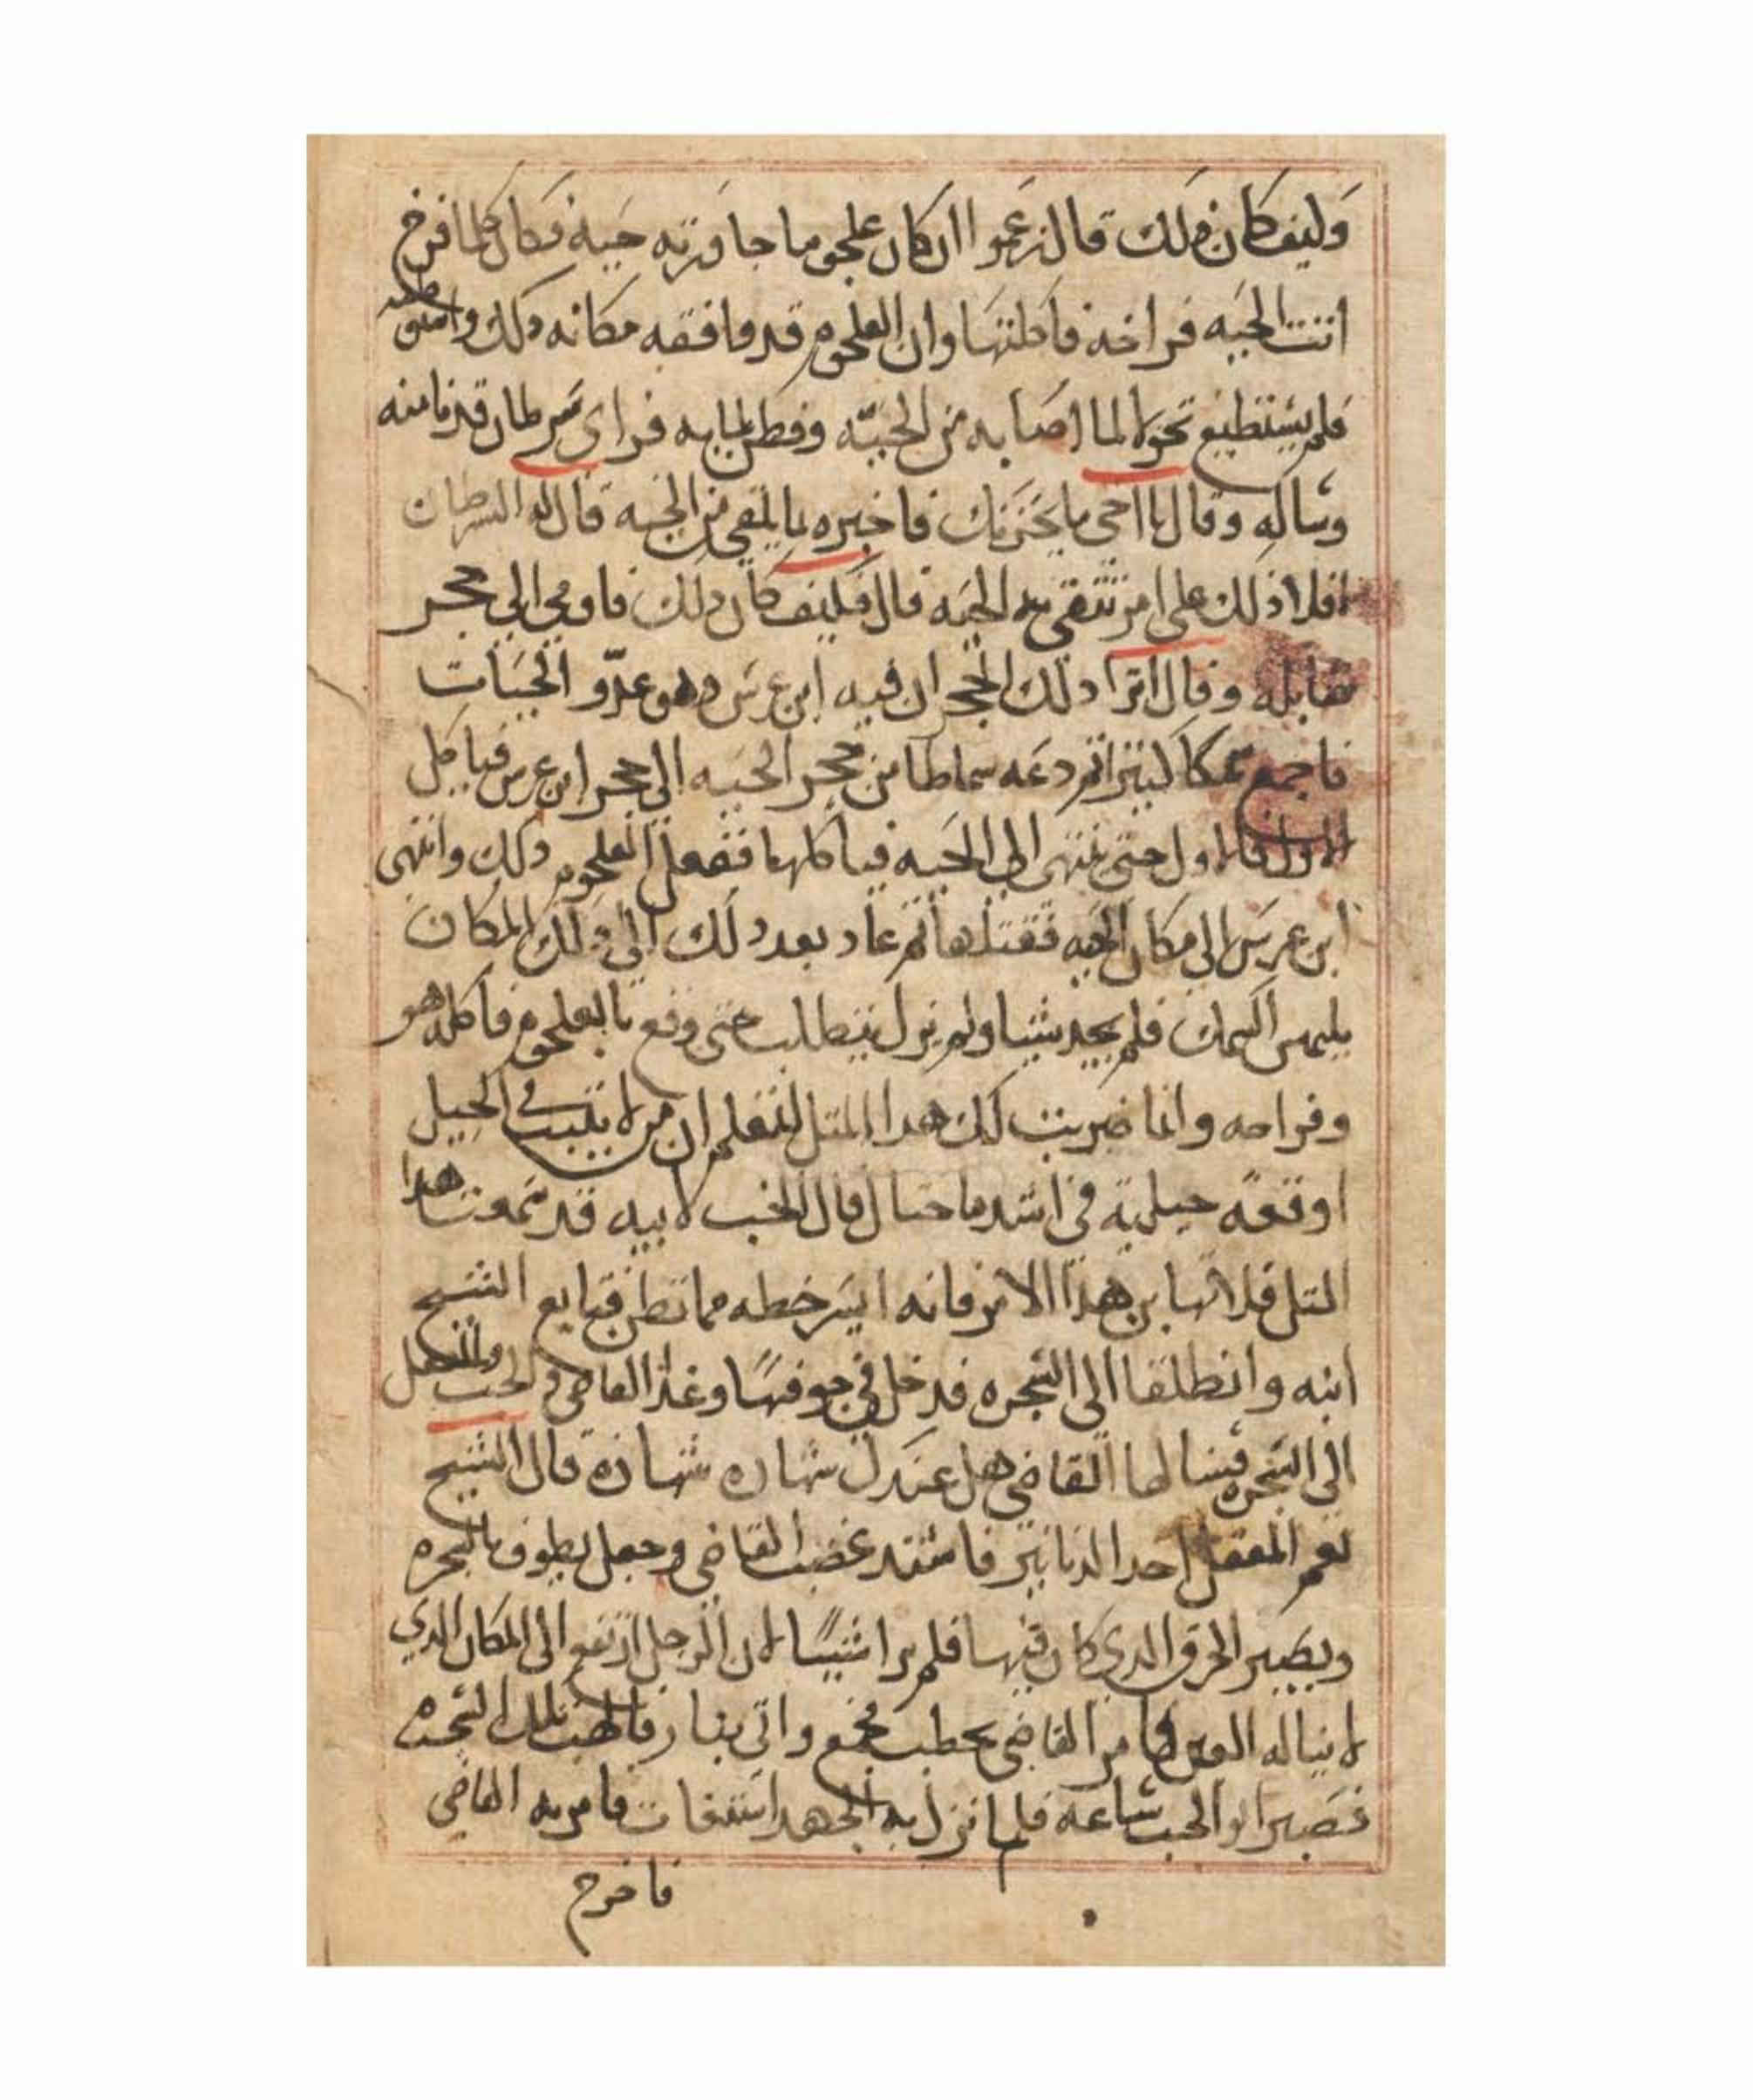 وكيف كان ذلك قال زعموا ان كان علجوما جاورته حية فكان كلما افرخ
اتت الحيه فراخه فاكلتها وان العلجوم قد وافقه مكانه ذلك
فلم يستطيع تحولا لما اصابه من الحيّه وفطن لما به فراى سرطان قد دنا منه
وساله وقال يا اخي ما يحزنك فاخبره بما يلقى من الحيه قال له السرطان
افلا ادلك على امر تشتفي به الحيه قال فكيف كان ذلك فاومى الى جحر
تقابله وقال اترا ذلك الجحر ان فيه ابن عرس وهو عدّو الحيات
فاجمع سمكا كبيرا ثم دعه سماطا من جحر الحيه الى جحر ابن عرس فياكل
الاول فالاول حتى ينتهي الى الحيه فياكلها ففعل العلجوم ذلك وانتهى
ابن عرس الى مكان الحيه فقتلها ثم عاد بعد ذلك الى ذلك المكان
يلتمس السمك فلم يجد شيا ولم يزل يتطلب حتى وقع بالعلجوم فاكله هو
وفراخه وانما ضربت لك هدا المتل لتعلم ان من لا يتبت في الحيل
اوقعه حيلته في اشد ما احتال قال الخب لابيه قد سمعت هدا
المتل فلا تهابن هذا الامر فانه ايسر خطه مما تظن فتابع الشيخ
ابنه وانطلقا الى الشجره فدخل في جوفها وغدا القاضي والخب والمغفل
الى الشجره فسالها القاضي هل عندك شهاده شهاده قال الشيخ
نعم المغفل احد الدنانير فاشتد غضب القاضي وجعل يطوف بالشجره
ويبصر الخرق الدي كان فيها فلم يرا شيئًا لان الرجل ارتفع الى المكان الدي
لا يناله العين فامر القاضي بحطب فجمع واتى بنار فالهب تلك الشجره
فصبر ابو الخب ساعه فلما نزل به الجهد استغات فامر به القاضي
فاخرج